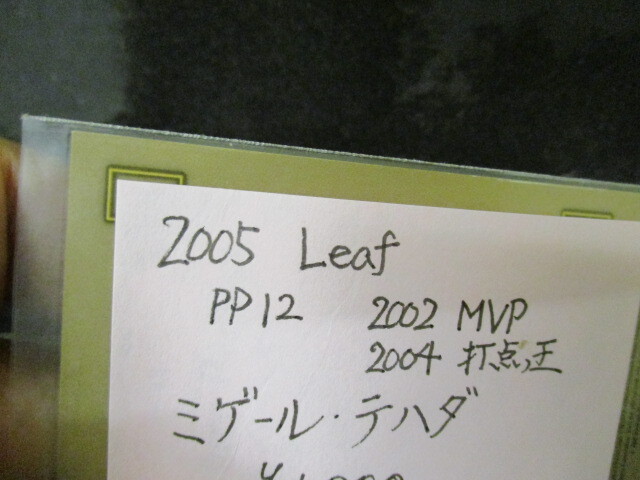 2005 Leaf
PP12 2002 MVP
2004 打点王
ミゲール・テハダ